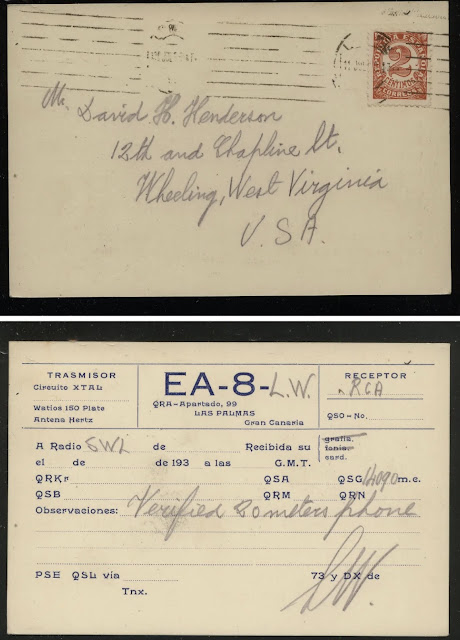 REPUBLICA ESPAÑOLA
2
CENTIMOS
CORREOS
Mr. David H. Henderson
12th and Chapline St.
Wheeling, West Virginia
U.S.A.
TRASMISOR
Circuito XTAL
Watios 150 Plate
Antena Hertz
EA-8-L.W.
QRA-Apartado, 99
LAS PALMAS
Gran Canaria
RECEPTOR
RCA
QSO-No.
A Radio SWL de Recibida su grafia. fonia. card.
el de de 193 a las G.M.T.
QRKr QSA QSG 14090 m.c.
QSB QRM QRN
Observaciones: Verified 20 meters phone
PSE QSL vía 73 y DX de
Tnx. LW.